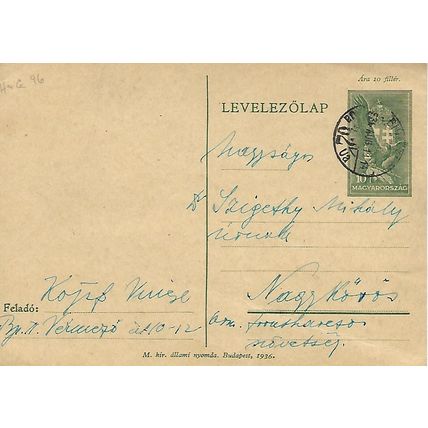 H-G 96
Ára 10 fillér.
LEVELEZŐLAP
10 f
MAGYARORSZÁG
70
Nagyságos
Dr Szigethy Mihály
úrnak
Nagykőrös
Orsz. frontharcos
szövetség.
Feladó:
Bp. II. Vérmező út 10-12
M. kir. állami nyomda. Budapest, 1936.